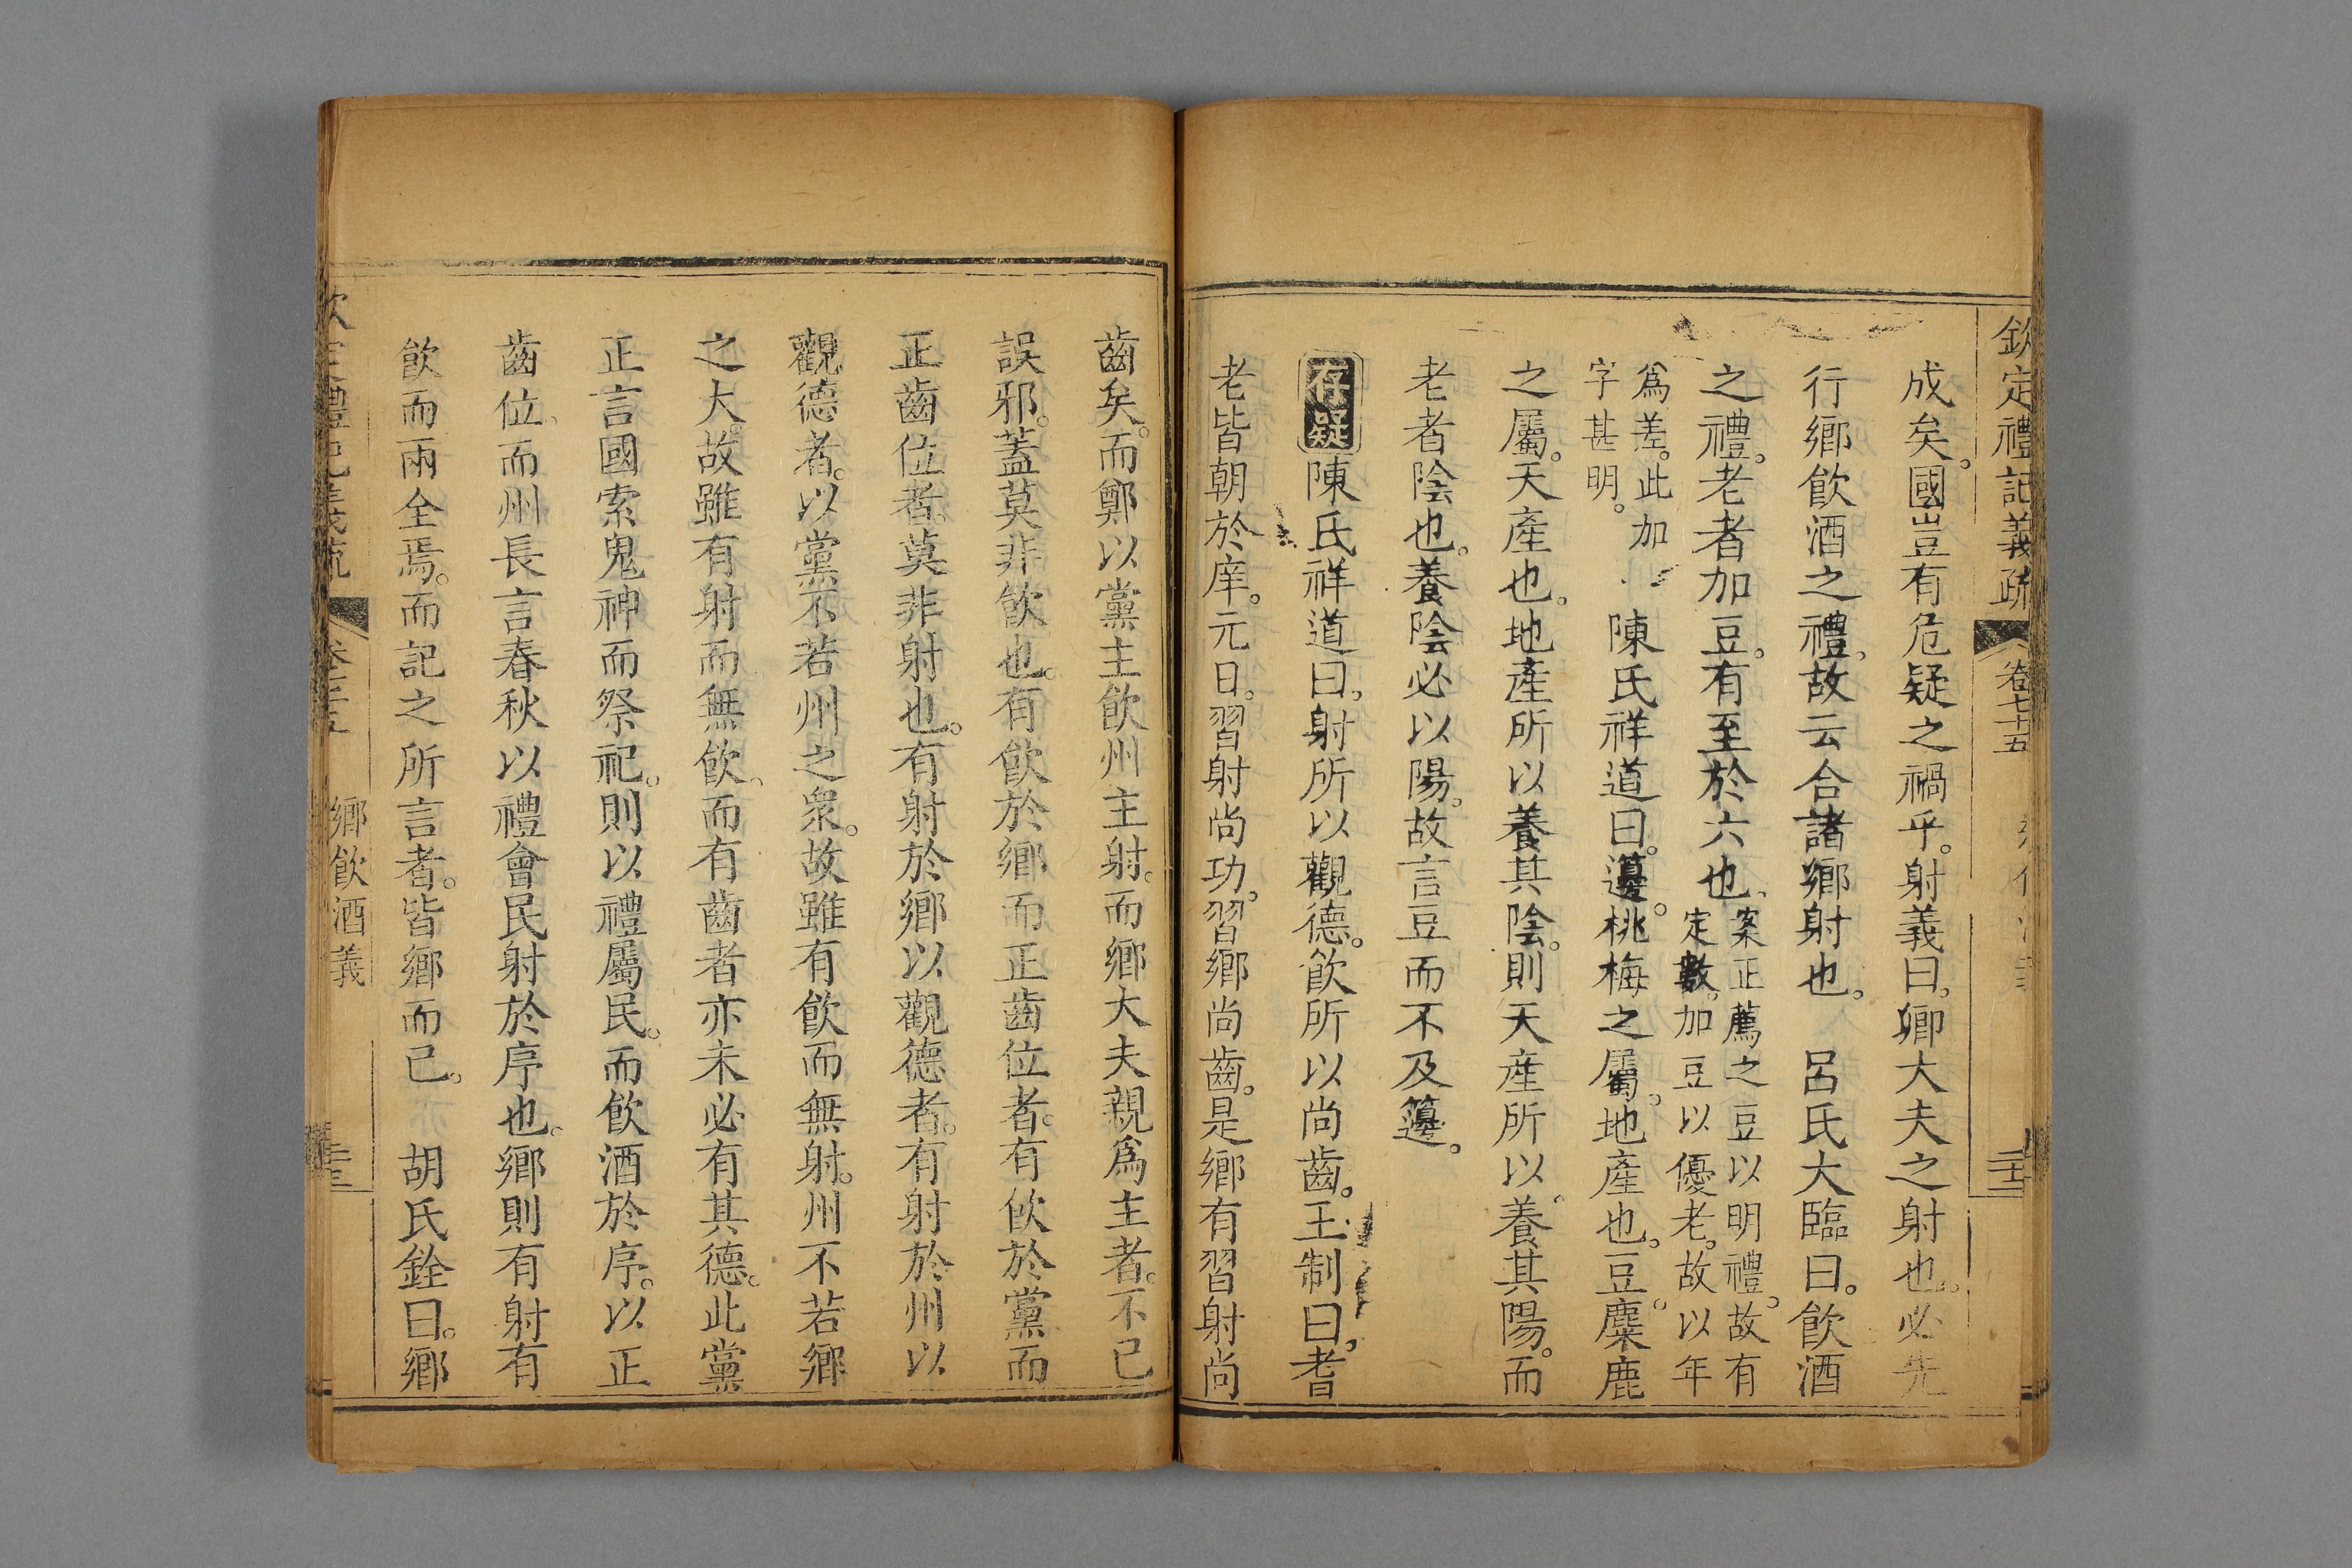 欽定禮記義疏 卷七十五
成矣。國豈有危疑之禍乎。射義曰。卿大夫之射也。必先
行鄉飲酒之禮。故云合諸鄉射也。 呂氏大臨曰。飲酒
之禮。老者加豆。有至於六也。案正薦之豆以明禮。故有定數。加豆以優老。故以年
爲差。此加字甚明。 陳氏祥道曰。籩。桃梅之屬。地產也。豆。麋鹿
之屬。天產也。地產所以養其陰。則天產所以養其陽。而
老者陰也。養陰必以陽。故言豆而不及籩。
存疑 陳氏祥道曰。射所以觀德。飲所以尚齒。王制曰。耆
老皆朝於庠。元日。習射尚功。習鄉尚齒。是鄉有習射尚
齒矣。而鄭以黨主飲州主射。而鄉大夫親爲主者。不已
誤邪。蓋莫非飲也。有飲於鄉而正齒位者。有飲於黨而
正齒位者。莫非射也。有射於鄉以觀德者。有射於州以
觀德者。以黨不若州之衆。故雖有飲而無射。州不若鄉
之大。故雖有射而無飲。而有齒者亦未必有其德。此黨
正言國索鬼神而祭祀。則以禮屬民。而飲酒於序。以正
齒位。而州長言春秋以禮會民射於序也。鄉則有射有
飲而兩全焉。而記之所言者。皆鄉而已。 胡氏銓曰。鄉
鄉飲酒義